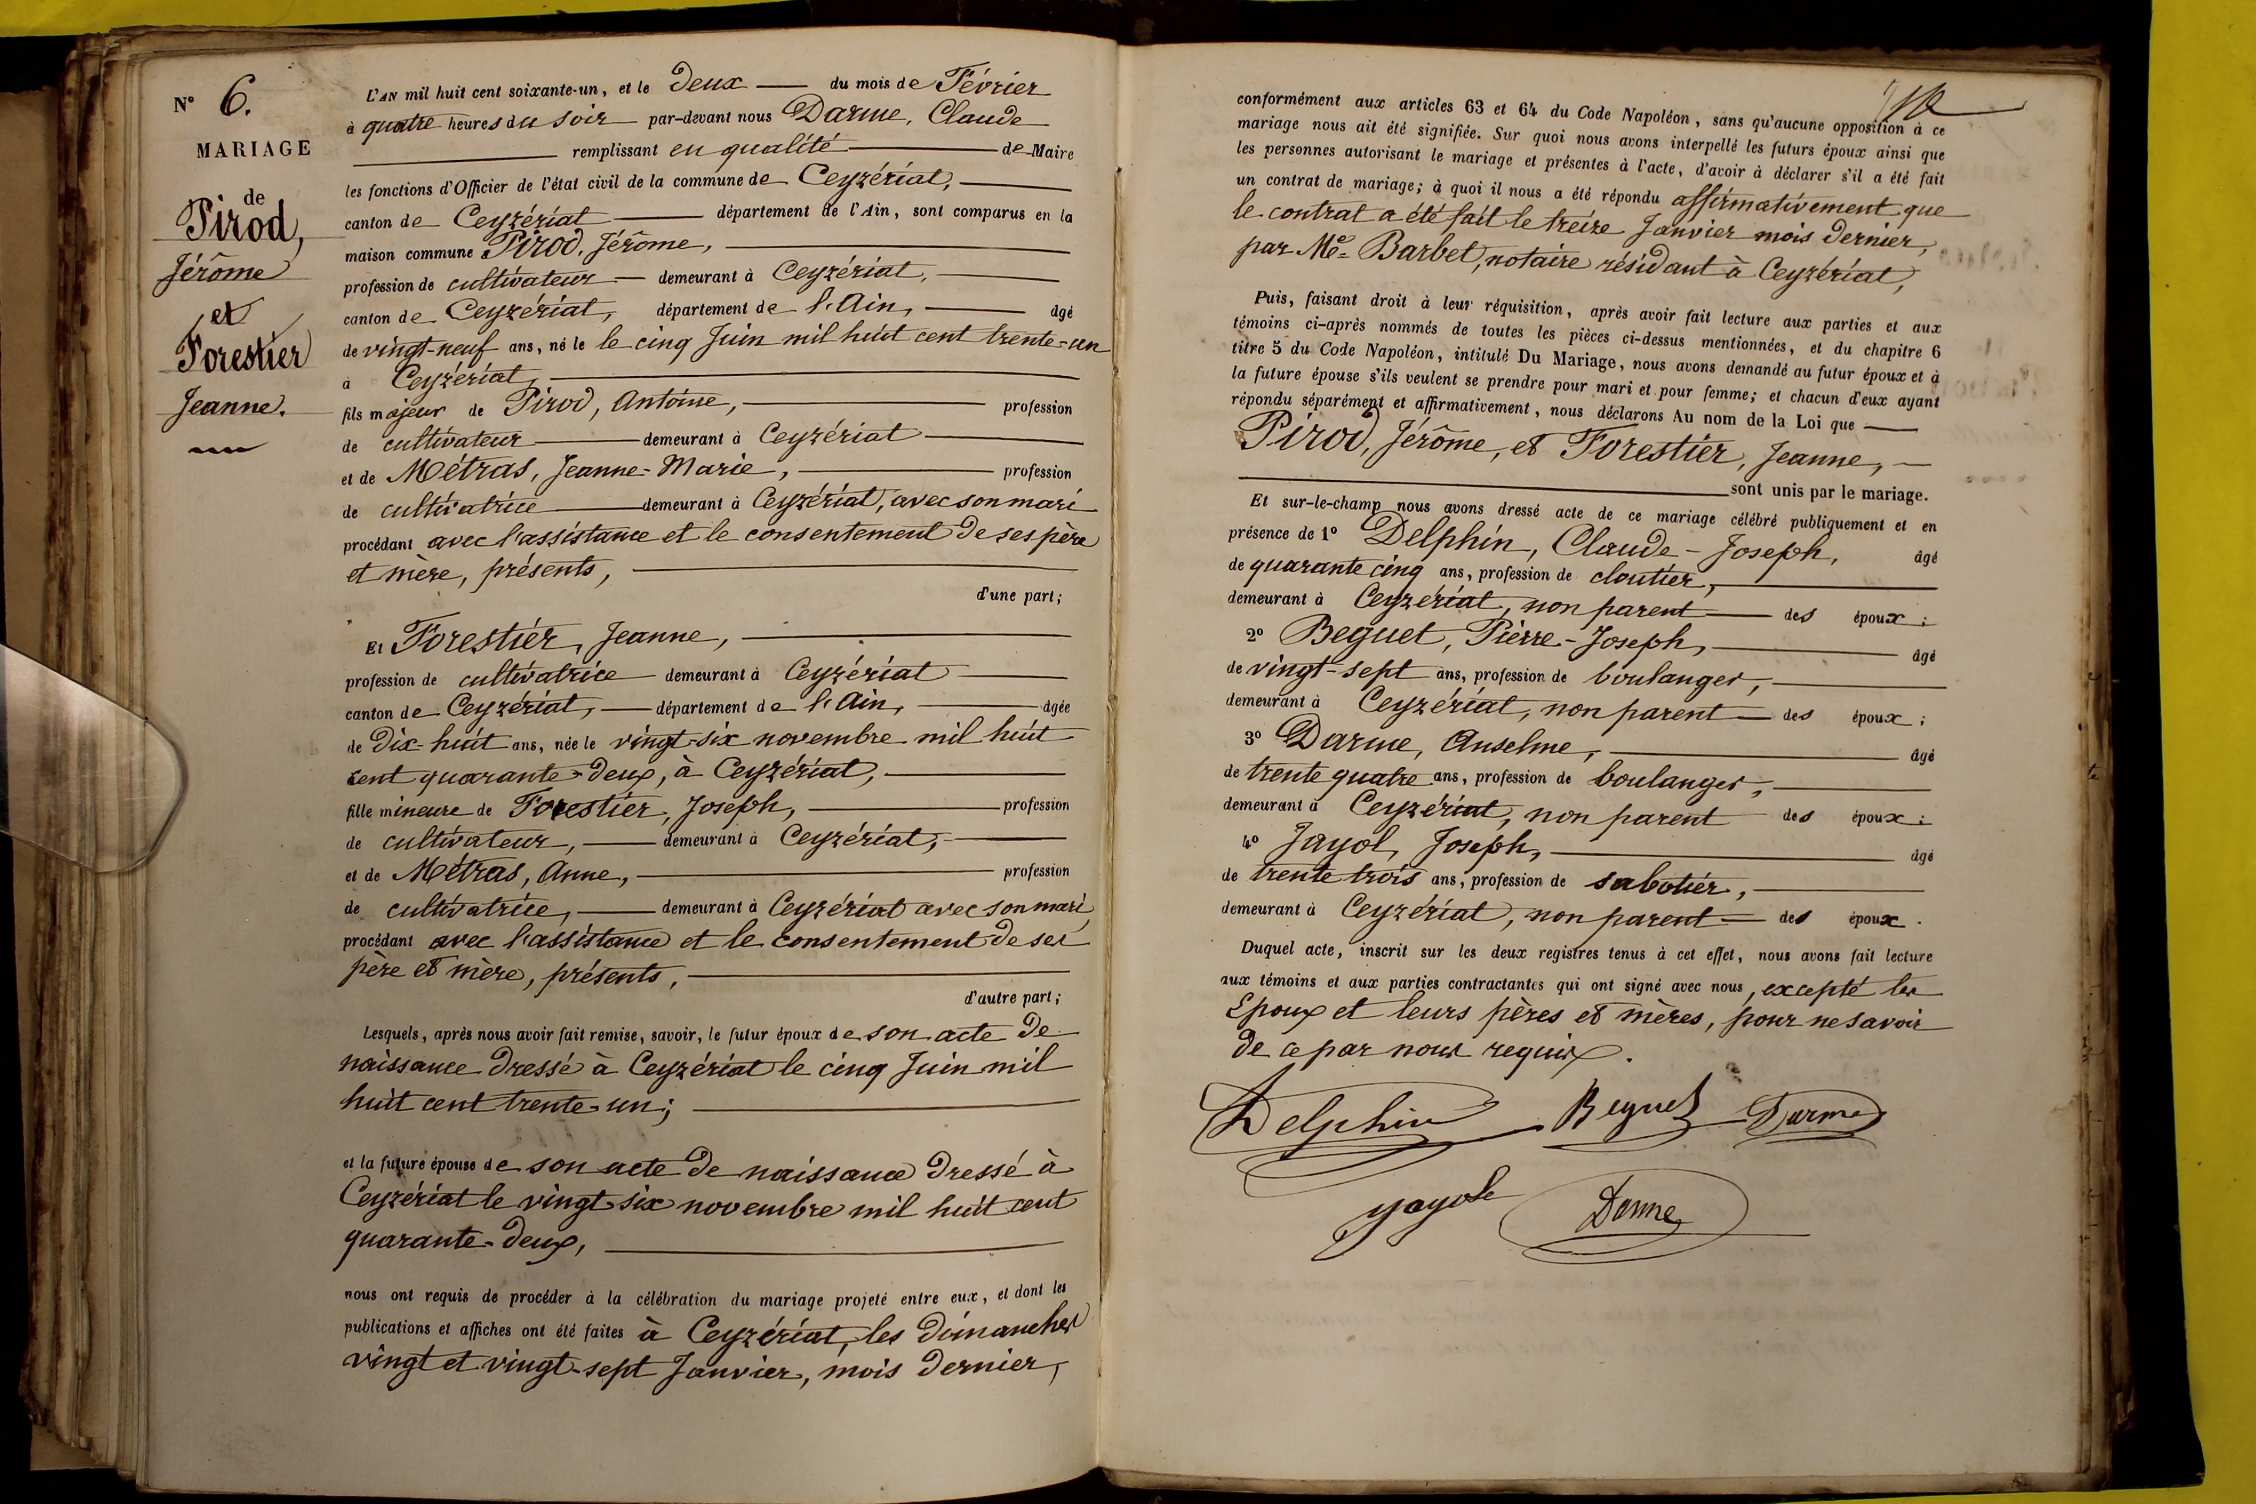 N° 6.
MARIAGE
de
Pirod,
Jérôme
et
Forestier
Jeanne.
L'AN mil huit cent soixante-un, et le deux du mois de Février
à quatre heures du soir par-devant nous Darme, Claude
remplissant en qualité de Maire
les fonctions d'Officier de l'état civil de la commune de Ceyzériat,
canton de Ceyzériat département de l'Ain, sont comparus en la
maison commune Pirod, Jérôme,
profession de cultivateur demeurant à Ceyzériat,
canton de Ceyzériat, département de l'Ain, âgé
de vingt-neuf ans, né le le cinq Juin mil huit cent trente-un
à Ceyzériat,
fils majeur de Pirod, Antoine, profession
de cultivateur demeurant à Ceyzériat
et de Métras, Jeanne-Marie, profession
de cultivatrice demeurant à Ceyzériat, avec son mari
procédant avec l'assistance et le consentement de ses père
et mère, présents,
d'une part;
Et Forestier, Jeanne,
profession de cultivatrice demeurant à Ceyzériat
canton de Ceyzériat, département de l'Ain, âgée
de dix-huit ans, née le vingt-six novembre mil huit
cent quarante-deux, à Ceyzériat,
fille mineure de Forestier, Joseph, profession
de cultivateur, demeurant à Ceyzériat,
et de Métras, Anne, profession
de cultivatrice, demeurant à Ceyzériat avec son mari,
procédant avec l'assistance et le consentement de ses
père et mère, présents,
d'autre part;
Lesquels, après nous avoir fait remise, savoir, le futur époux de son acte de
naissance dressé à Ceyzériat le cinq Juin mil
huit cent trente-un;
et la future épouse de son acte de naissance dressé à
Ceyzériat le vingt-six novembre mil huit cent
quarante-deux,
nous ont requis de procéder à la célébration du mariage projeté entre eux, et dont les
publications et affiches ont été faites à Ceyzériat, les dimanches
vingt et vingt-sept Janvier, mois dernier,
conformément aux articles 63 et 64 du Code Napoléon, sans qu'aucune opposition à ce
mariage nous ait été signifiée. Sur quoi nous avons interpellé les futurs époux ainsi que
les personnes autorisant le mariage et présentes à l'acte, d'avoir à déclarer s'il a été fait
un contrat de mariage; à quoi il nous a été répondu affirmativement que
le contrat a été fait le treize Janvier mois dernier,
par Me Barbet, notaire résidant à Ceyzériat,
Puis, faisant droit à leur réquisition, après avoir fait lecture aux parties et aux
témoins ci-après nommés de toutes les pièces ci-dessus mentionnées, et du chapitre 6
titre 5 du Code Napoléon, intitulé Du Mariage, nous avons demandé au futur époux et à
la future épouse s'ils veulent se prendre pour mari et pour femme; et chacun d'eux ayant
répondu séparément et affirmativement, nous déclarons Au nom de la Loi que
Pirod, Jérôme, et Forestier, Jeanne,
sont unis par le mariage.
Et sur-le-champ nous avons dressé acte de ce mariage célébré publiquement et en
présence de 1° Delphin, Claude-Joseph, âgé
de quarante cinq ans, profession de cloutier,
demeurant à Ceyzériat, non parent des époux;
2° Beguet, Pierre-Joseph, âgé
de vingt-sept ans, profession de boulanger,
demeurant à Ceyzériat, non parent des époux;
3° Darme, Anselme, âgé
de trente quatre ans, profession de boulanger,
demeurant à Ceyzériat, non parent des époux;
4° Jayol, Joseph, âgé
de trente trois ans, profession de sabotier,
demeurant à Ceyzériat, non parent des époux.
Duquel acte, inscrit sur les deux registres tenus à cet effet, nous avons fait lecture
aux témoins et aux parties contractantes qui ont signé avec nous, excepté les
Epoux et leurs pères et mères, pour ne savoir
de ce par nous requis.
Delphin Beguet Darme
yayole Darme